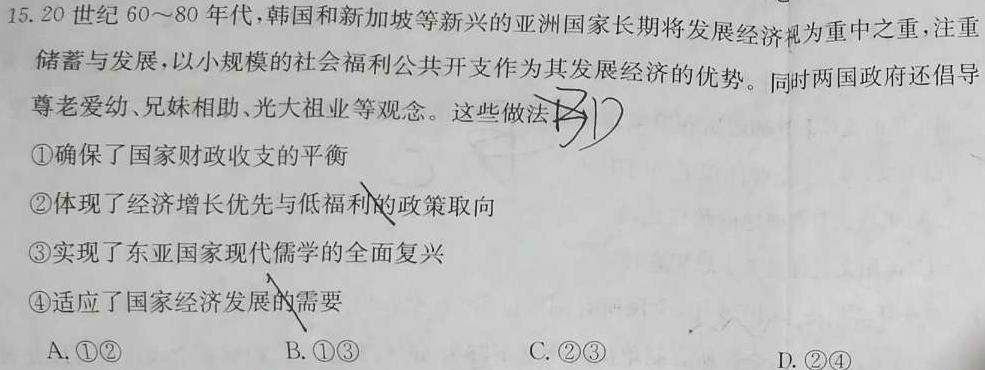 15. 20 世纪 60～80 年代，韩国和新加坡等新兴的亚洲国家长期将发展经济视为重中之重，注重
储蓄与发展，以小规模的社会福利公共开支作为其发展经济的优势。同时两国政府还倡导
尊老爱幼、兄妹相助、光大祖业等观念。这些做法
①确保了国家财政收支的平衡
②体现了经济增长优先与低福利的政策取向
③实现了东亚国家现代儒学的全面复兴
④适应了国家经济发展的需要
A. ①② B. ①③ C. ②③ D. ②④